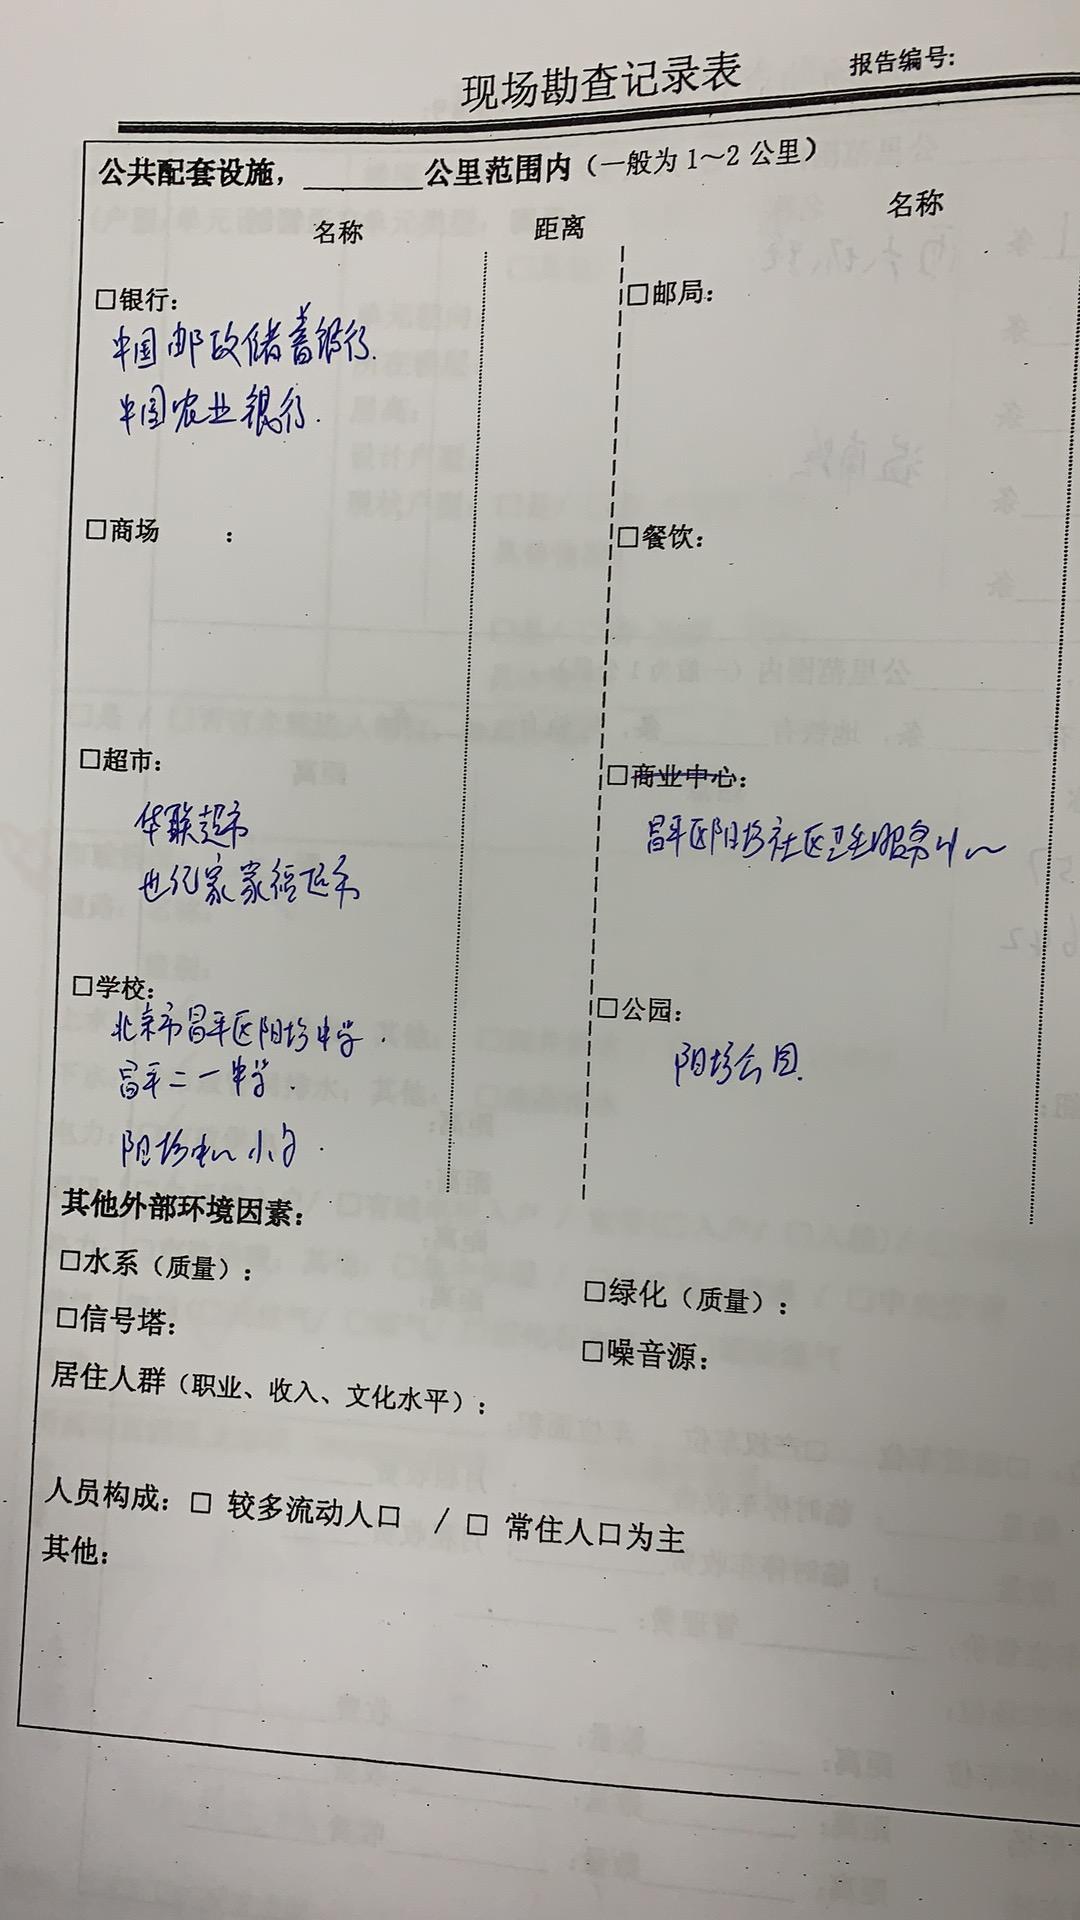 现场勘查记录表
报告编号:
公共配套设施，______公里范围内（一般为1～2公里）
名称 距离 名称
□银行: □邮局:
中国邮政储蓄银行.
中国农业银行.
□商场 : □餐饮:
□超市: □商业中心:
华联超市 昌平区阳坊社区卫生服务中心
世纪家家福超市
□学校: □公园:
北京市昌平区阳坊中学. 阳坊公园.
昌平二一中学.
阳坊中心小学.
其他外部环境因素:
□水系（质量）: □绿化（质量）:
□信号塔: □噪音源:
居住人群（职业、收入、文化水平）:
人员构成: □ 较多流动人口 / □ 常住人口为主
其他: